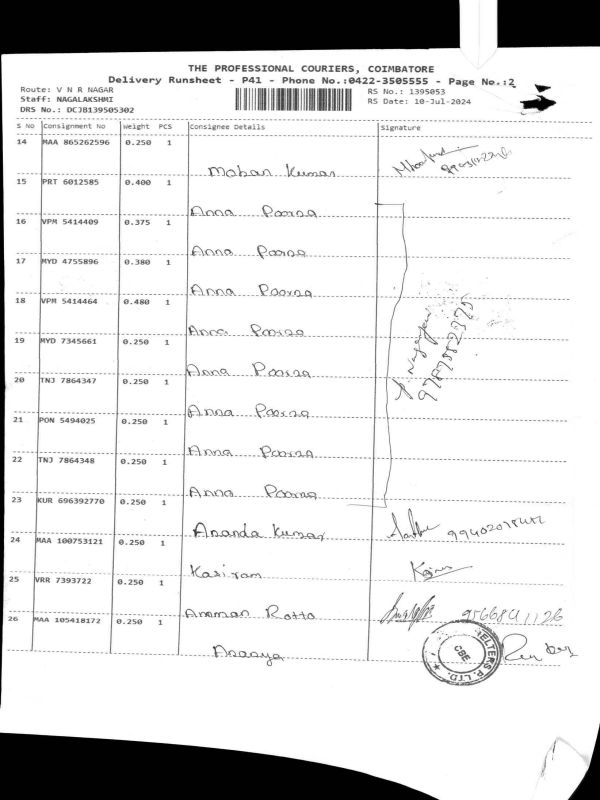 THE PROFESSIONAL COURIERS, COIMBATORE
Delivery Runsheet - P41 - Phone No.:0422-3505555 - Page No.:2
Route: V N R NAGAR RS No.: 1395053
Staff: NAGALAKSHMI RS Date: 10-Jul-2024
DRS No.: DCJB139505302
S No Consignment No Weight PCS Consignee Details Signature
14 MAA 865262596 0.250 1
Mohan Kumar
15 PRT 6012585 0.400 1
Anna Poorna
16 VPM 5414409 0.375 1
Anna Poorna
17 MYD 4755896 0.380 1
Anna Poorna
18 VPM 5414464 0.480 1
Anna Poorna
19 MYD 7345661 0.250 1
Anna Poorna
20 TNJ 7864347 0.250 1
Anna Poorna
21 PON 5494025 0.250 1
Anna Poorna
22 TNJ 7864348 0.250 1
Anna Poorna
23 KUR 696392770 0.250 1
Ananda Kumar
24 MAA 100753121 0.250 1
Kasiram
25 VRR 7393722 0.250 1
Amman Rotto 9566841126
26 MAA 105418172 0.250 1
Anaaya
ELTERS P. LTD.
CBE